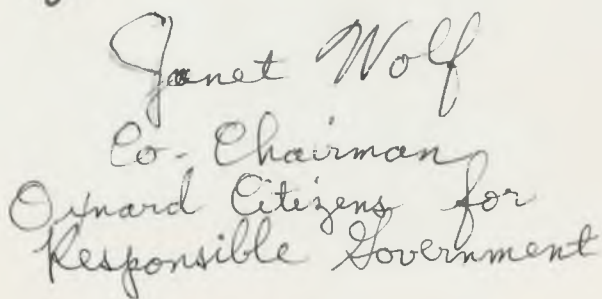 Janet Wolf
Co-Chairman
Oxnard Citizens for
Responsible Government